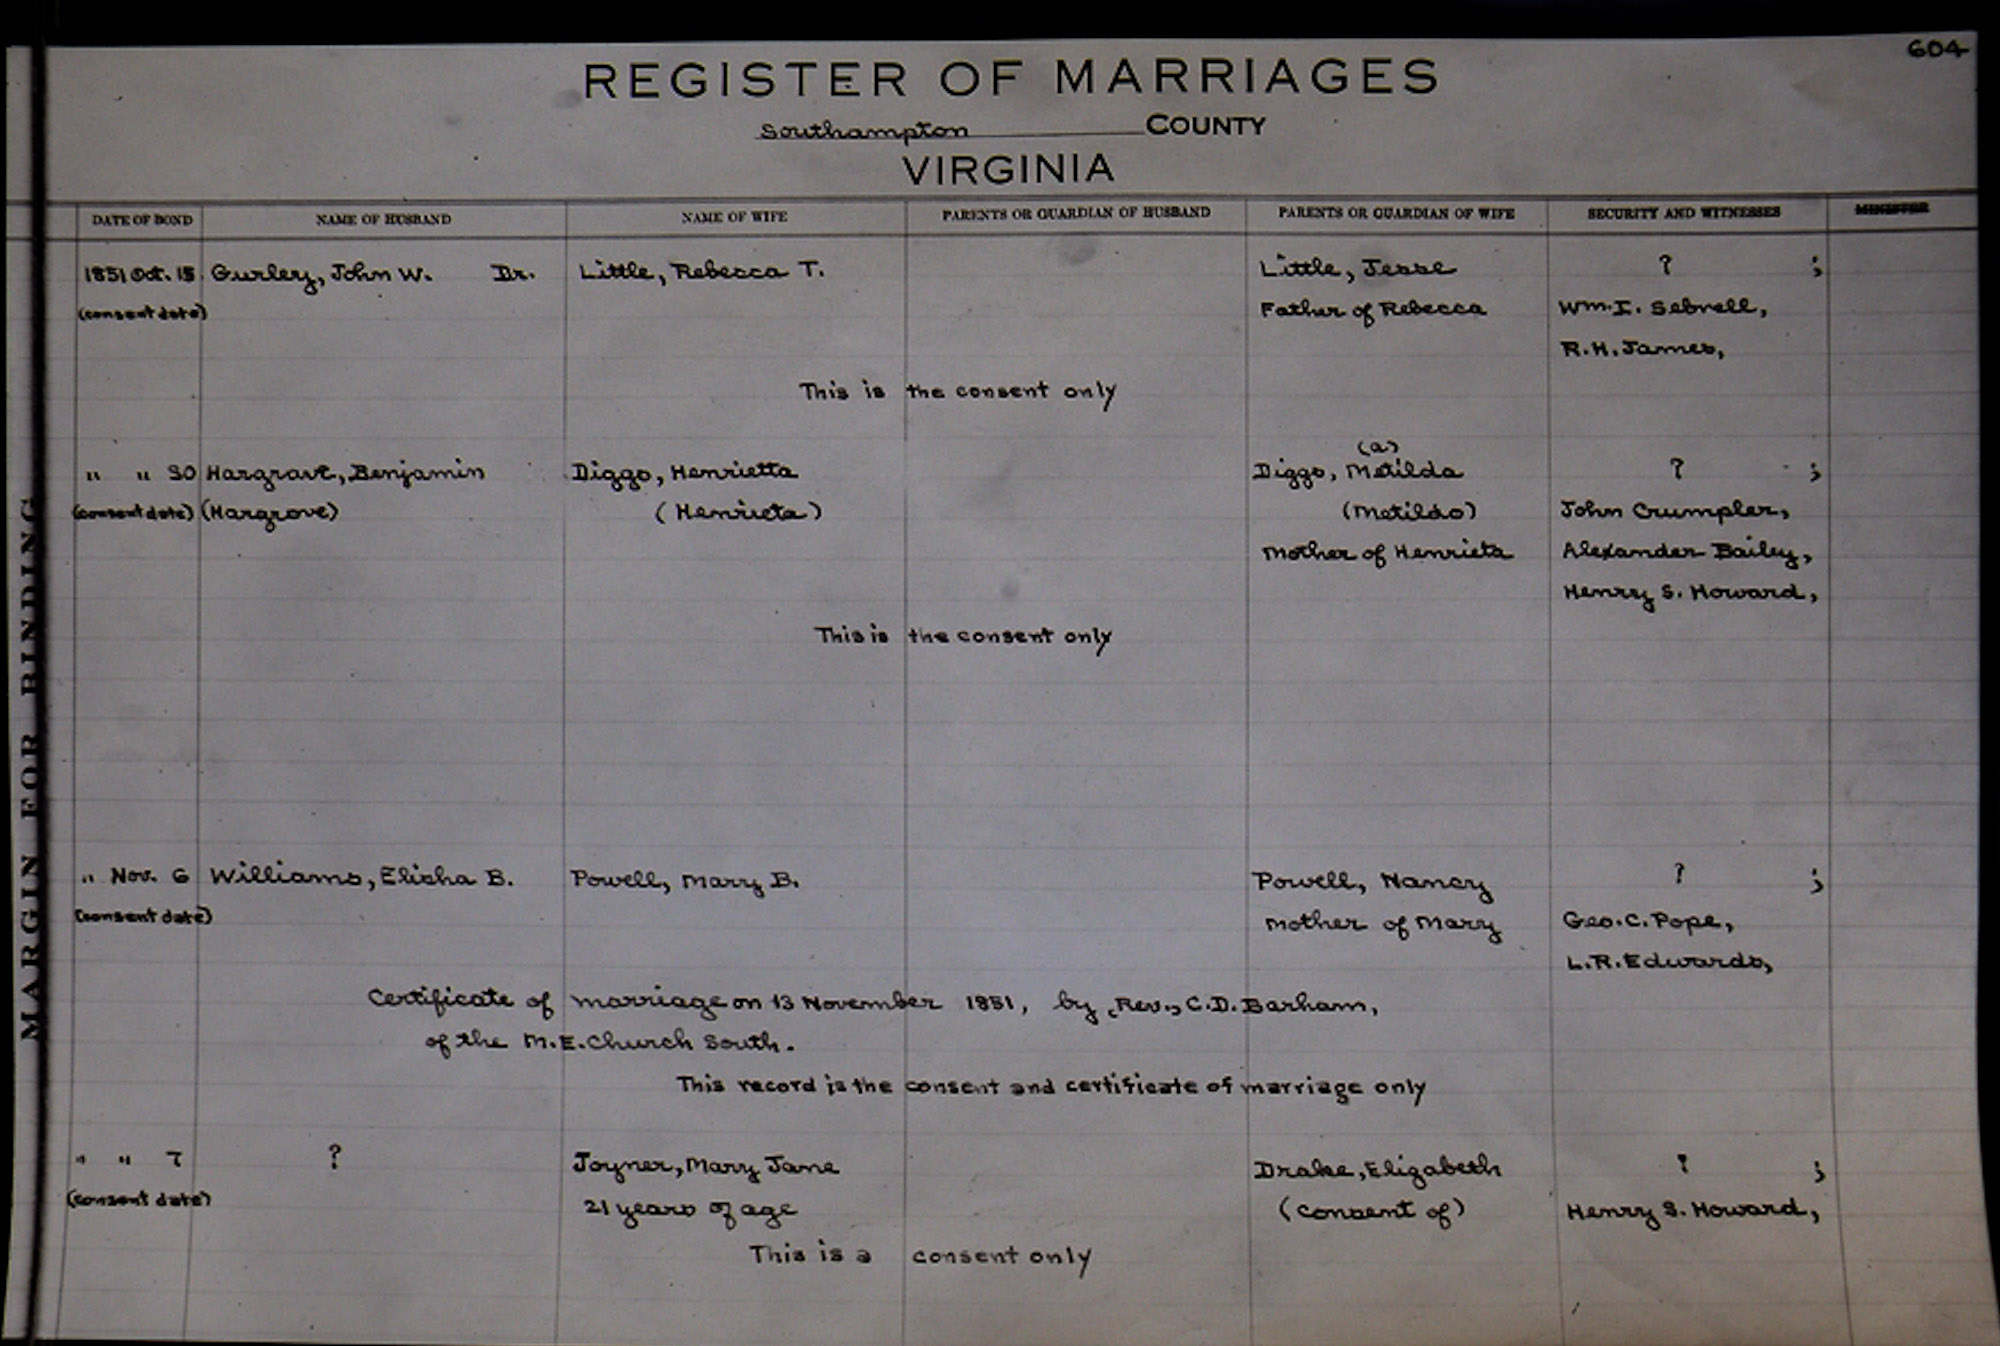 604
REGISTER OF MARRIAGES
Southampton COUNTY
VIRGINIA
DATE OF BOND NAME OF HUSBAND NAME OF WIFE PARENTS OR GUARDIAN OF HUSBAND PARENTS OR GUARDIAN OF WIFE SECURITY AND WITNESSES MINISTER
1851 Oct. 15 Gurley, John W. Dr. Little, Rebecca T. Little, Jesse ? ;
(consent date) Father of Rebecca Wm. I. Sebrell,
R.H. James,
This is the consent only
(a)
" " 30 Hargrave, Benjamin Diggs, Henrietta Diggs, Matilda ? ;
(consent date) (Hargrove) (Henrieta) (Matildo) John Crumpler,
Mother of Henrieta Alexander Bailey,
Henry S. Howard,
This is the consent only
" Nov. 6 Williams, Elisha B. Powell, Mary B. Powell, Nancy ? ;
(consent date) Mother of Mary Geo. C. Pope,
L.R. Edwards,
Certificate of marriage on 13 November 1851, by (Rev.) C.D. Barham,
of the M.E. Church South.
This record is the consent and certificate of marriage only
" " 7 ? Joyner, Mary Jane Drake, Elizabeth ? ;
(consent date) 21 years of age (consent of) Henry S. Howard,
This is a consent only
MARGIN FOR BINDING